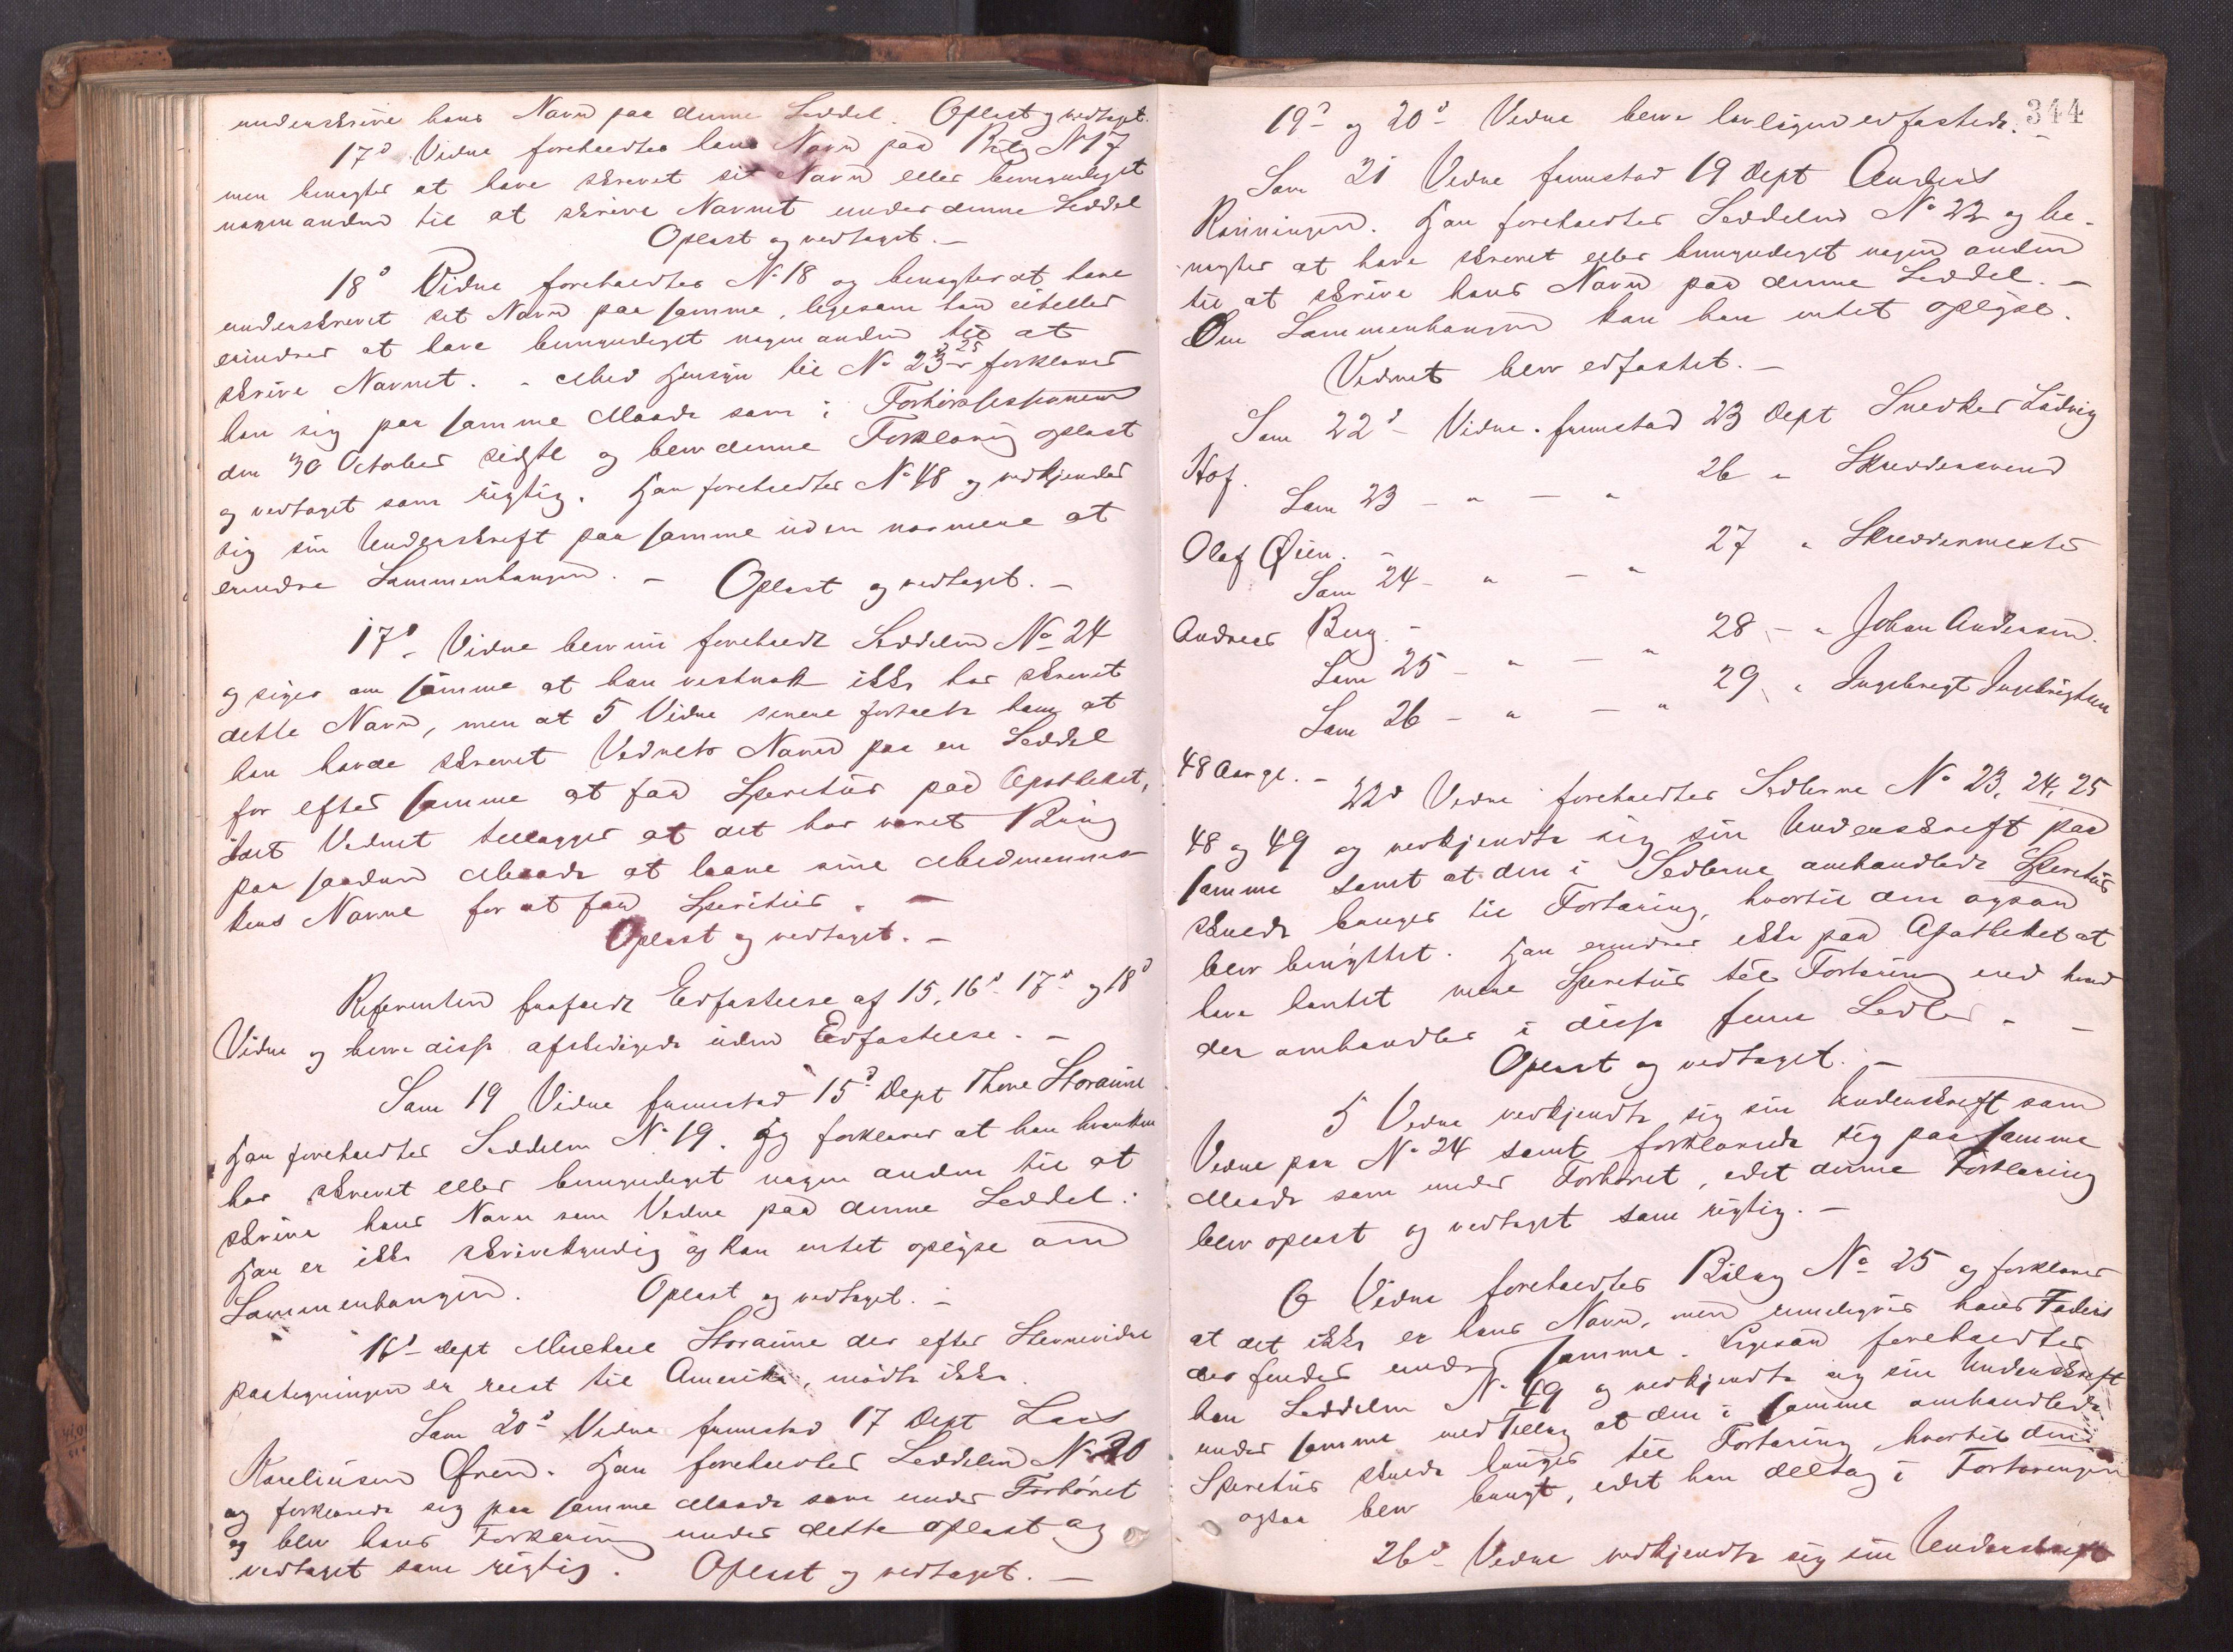 underskrive hans Navn paa denne Seddel. Oplæst og vedtaget.
17d Vidne foreholdtes hans Navn paa Bilag N 17
men benægter at have skrevet sit Navn eller bemyndiget
nogen anden til at skrive Navnet under denne Seddel
Oplæst og vedtaget. —
18d Vidne foreholdtes No 18 og benægter at have
underskrevet sit Navn paa samme, ligesom han ei heller
erindrer at have bemyndiget nogen anden til at
skrive Navnet. - Med Hensyn til No 23 - 25 forklarer
han sig paa samme Maade som i Forhørssessionen
den 30 October sidste og blev denne Forklaring oplæst
og vedtaget som rigtig. Han foreholdtes No 48 og vedkjender
sig sin Underskrift paa samme uden nærmere at
erindre Sammenhængen. — Oplæst og vedtaget. —
17d Vidne blev nu foreholdt Seddelen No 24
og siger om samme at han vistnok ikke har skrevet
dette Navn, men at 5 Vidne senere fortalte ham at
han havde skrevet Vidnets Navn paa en Seddel
for efter samme at faa Spiritus paa Apotheket,
idet Vidnet tillægger at det har været Brug
paa saadan Maade at laane sine Medmennes-
kers Navne for at faa Spiritus. —
Oplæst og vedtaget. —
Referenten frafaldt Edfæstelse af 15, 16d 17d og 18d
Vidne og bleve disse afskedigede uden Edfæstelse. —
Som 19 Vidne fremstod 15d Dept Thore Storaune
Han foreholdtes Seddelen No 19. Og forklarer at han hverken
har skrevet eller bemyndiget nogen anden til at
skrive hans Navn som Vidne paa denne Seddel.
Han er ikke skrivekyndig og kan intet oplyse om
Sammenhængen. Oplæst og vedtaget. —
16d Dept Michael Storaune der efter Stevnevidne
paategningen er reist til Amerika, mødte ikke.
Som 20d Vidne fremstod 17 Dept Lars
Kareliusen Øren. Han foreholdtes Seddelen No 20
og forklarede sig paa samme Maade som under Forhøret
og blev hans Forklaring under dette oplæst og
vedtaget som rigtig. Oplæst og vedtaget. —
344
19d og 20d Vidne bleve lovligen edfæstede. —
Som 21 Vidne fremstod 19 Dept Anders
Rønningen. Han foreholdtes Seddelen No 22 og be-
nægter at have skrevet eller bemyndiget nogen anden
til at skrive hans Navn paa denne Seddel. —
Om Sammenhængen kan han intet oplyse.
Vidnet blev edfæstet. —
Som 22d Vidne fremstod 23 Dept Snedker Ludvig
Hof.
Som 23 — " — " 26 " Skreddersvend
Olaf Øien. —
Som 24 — " — " 27 " Skreddermester
Andreas Berg. —
Som 25 — " — " 28 — " Johan Andersen.
Som 26 — " — " 29 " Ingebrigt Ingebrigtsen
48 Aar gl. —
22d Vidne foreholdtes Sedlerne No 23, 24, 25
48 og 49 og vedkjendte sig sin Underskrift paa
samme samt at den i Sedlerne omhandlede Spiritus
skulde bruges til Fortæring, hvortil den ogsaa
blev benyttet. Han erindrer ikke paa Apotheket at
have hentet mere Spiritus til Fortæring end hvad
der omhandles i disse fem Sedler. —
Oplæst og vedtaget. —
5 Vidne vedkjendte sig sin Underskrift som
Vidne paa No 24 samt forklarede sig paa samme
Maade som under Forhøret, idet denne Forklaring
blev oplæst og vedtaget som rigtig. —
6 Vidne foreholdtes Bilag No 25 og forklarer
at det ikke er hans Navn, men hans Faders
der findes under samme. Ligesaa foreholdtes
han Seddelen No 49 og vedkjendte sig sin Underskrift
under samme med Tillæg at den i samme omhandlede
Spiritus skulde bruges til Fortæring, hvortil den
ogsaa blev brugt, idet han deltog i Fortæringen
26d Vidne vedkjendte sig sin Underskrift